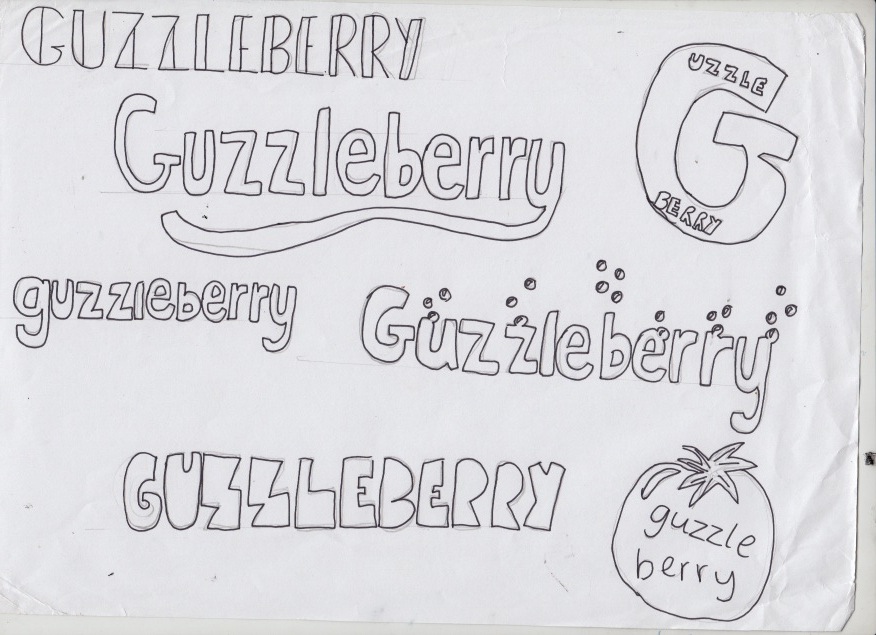 GUZZLEBERRY
Guzzleberry
GUZZLE
BERRY
guzzleberry
Guzzleberry
GUZZLEBERRY
guzzle
berry